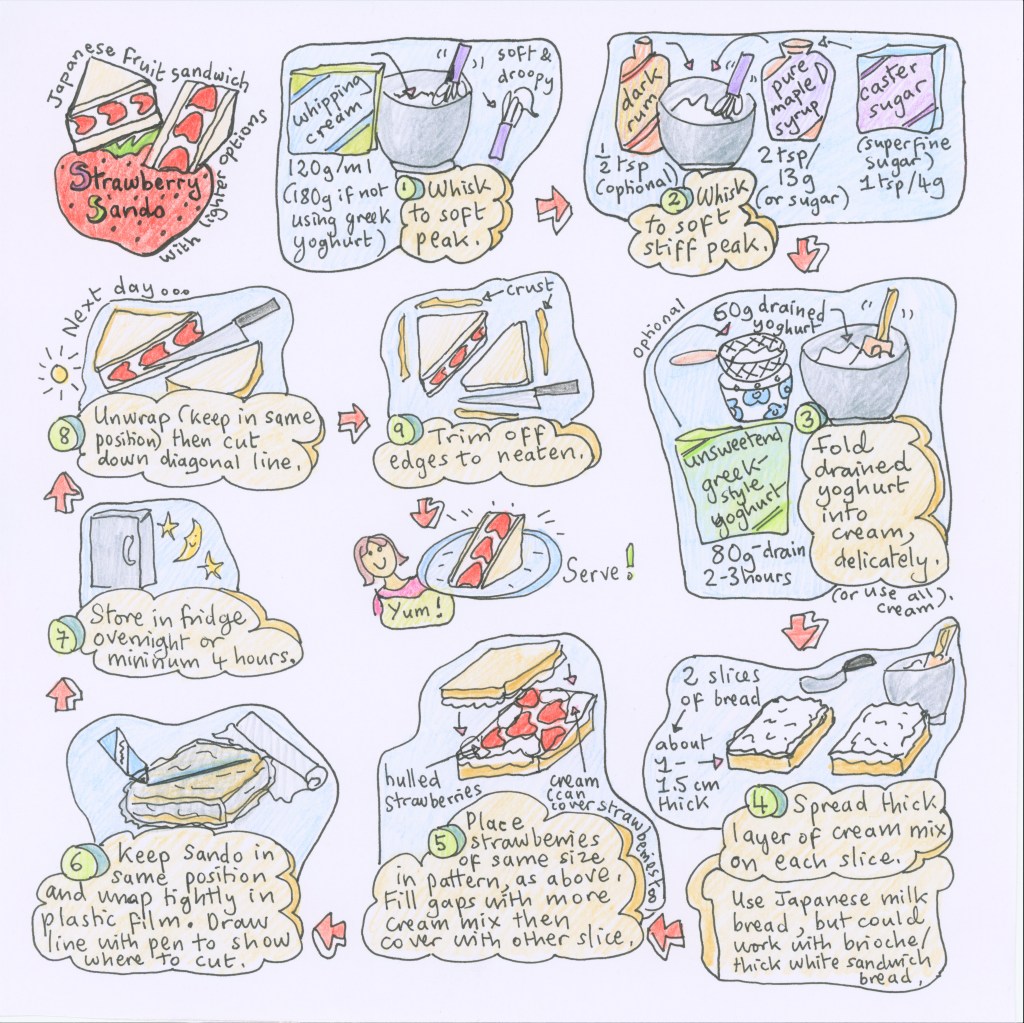 Japanese fruit sandwich
Strawberry
Sando
with lighter options
whipping
cream
soft &
droopy
120g/ml
(180g if not
using greek
yoghurt)
1 Whisk
to soft
peak.
dark
rum
pure
maple
syrup
caster
sugar
1/2 tsp
(optional)
2 tsp/
13g
(or sugar)
(superfine
sugar)
1 tsp/4g
2 Whisk
to soft
stiff peak.
Optional
60g drained
yoghurt
unsweetend
greek-
style
yoghurt
80g-drain
2-3 hours
3
Fold
drained
yoghurt
into
cream,
delicately.
(or use all
cream).
2 slices
of bread
about
1-
1.5 cm
thick
4 Spread thick
layer of cream mix
on each slice.
Use Japanese milk
bread, but could
work with brioche/
thick white sandwich
bread.
hulled
strawberries
cream
(can
cover strawberries too)
5 Place
strawberries
of same size
in pattern, as above.
Fill gaps with more
cream mix then
cover with other slice.
6 Keep Sando in
same position
and wrap tightly in
plastic film. Draw
line with pen to show
where to cut.
7 Store in fridge
overnight or
mininum 4 hours.
Next day...
8 Unwrap (keep in same
position) then cut
down diagonal line.
crust
9 Trim off
edges to neaten.
Yum!
Serve!